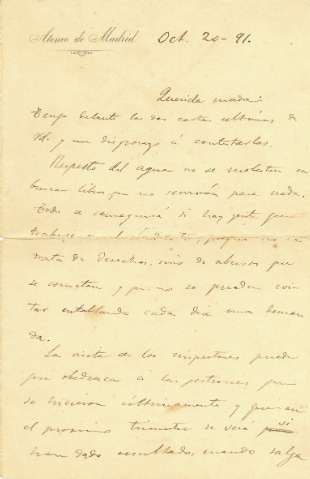 Ateneo de Madrid Oct. 20-91.
Querida madre:
Tengo delante las dos cartas últimas de
Vd. y me dispongo á contestarlas.
Respecto del agua no se molesten en
buscar libros que no servirán para nada.
Todo se conseguirá si hay gente que
trabaje en el
trata de derechos, sino de abusos que
se cometan y que no se pueden evi-
tar entablando cada dia una deman-
da.
La visita de los inspectores puede
que obedezca á las gestiones que
se hicieron últimamente y que en
el proximo trimestre se verá si
han dado resultado, cuando salga